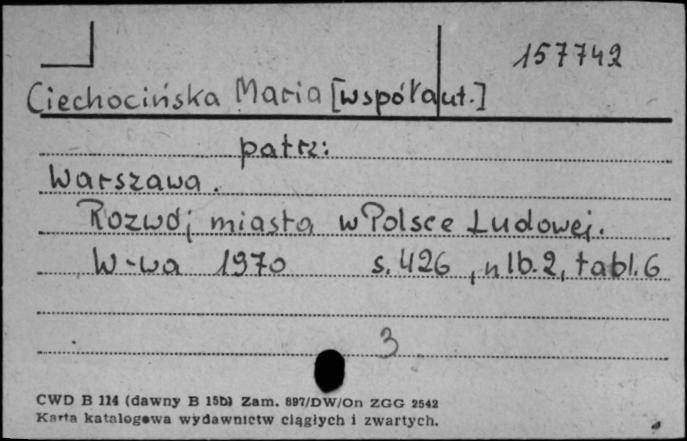 157742
Ciechocińska Maria [współaut.]
patrz:
Warszawa.
Rozwój miasta w Polsce Ludowej.
W-wa 1970 s. 426, nlb. 2, tabl. 6
3
CWD B 114 (dawny B 15b) Zam. 897/DW/On ZGG 2542
Karta katalogowa wydawnictw ciągłych i zwartych.